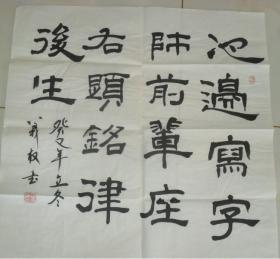 池邊寫字
師前輩座
右題銘律
後生
年立冬
书